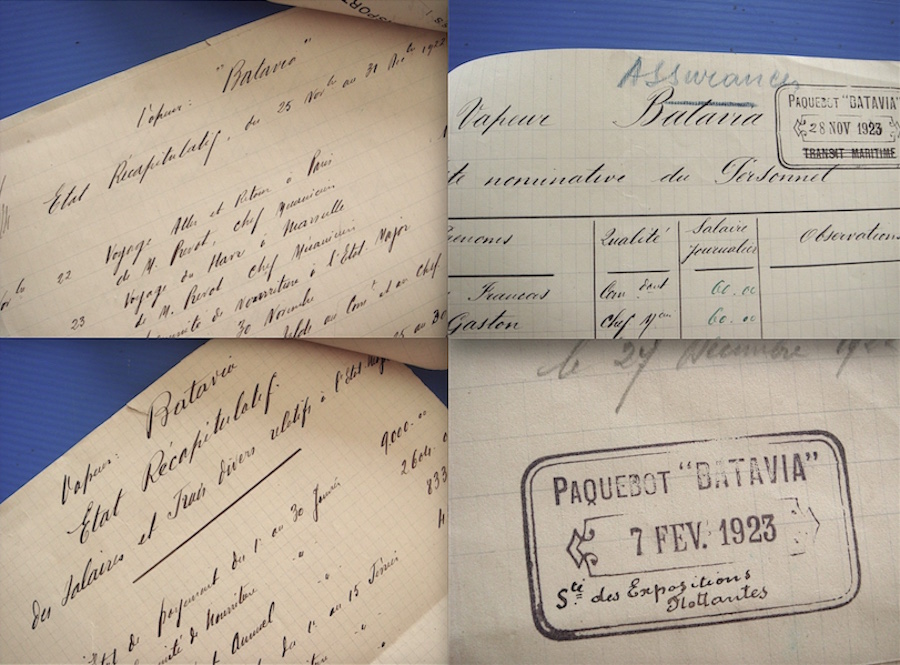 Vapeur: "Batavia"
Etat Récapitulatif, du 25 Novbre au 31 Décbre 1922
22 Voyage Aller et Retour à Paris
de M. Prevot, Chef Mécanicien
Voyage du Havre à Marseille
23 de M. Prevot Chef Mécanicien
de Nourriture à l'Etat Major
30 Novembre
au Comt et au Chef
Assurances
Vapeur Batavia
PAQUEBOT "BATAVIA"
28 NOV 1923
TRANSIT MARITIME
te nominative du Personnel
Prenoms Qualité Salaire Journalier Observations
Francois Com dant 60.00
Gaston Chef Mcien 60.00
Vapeur: Batavia
Etat Récapitulatif
des Salaires et Frais divers relatifs à l'Etat Major
de payement du 1er au 30 Janvier 9.000.00
de Nourriture " " 2604.00
Annuel " 833
du 1er au 15 Février
Nourriture "
le 27 Décembre 192
PAQUEBOT "BATAVIA"
7 FEV. 1923
Sté des Expositions
Flottantes